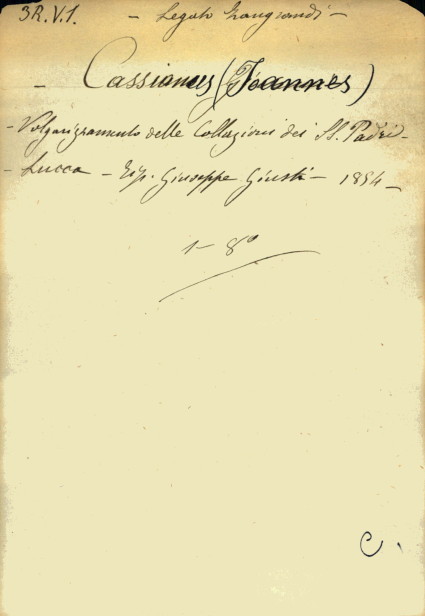 3R.V.1. - Legato Zangrandi -
- Cassianus (Joannes)
- Volgarizzamento delle Collazioni dei SS. Padri -
- Lucca - Tip. Giuseppe Giusti - 1854 -
1 - 8º
C.